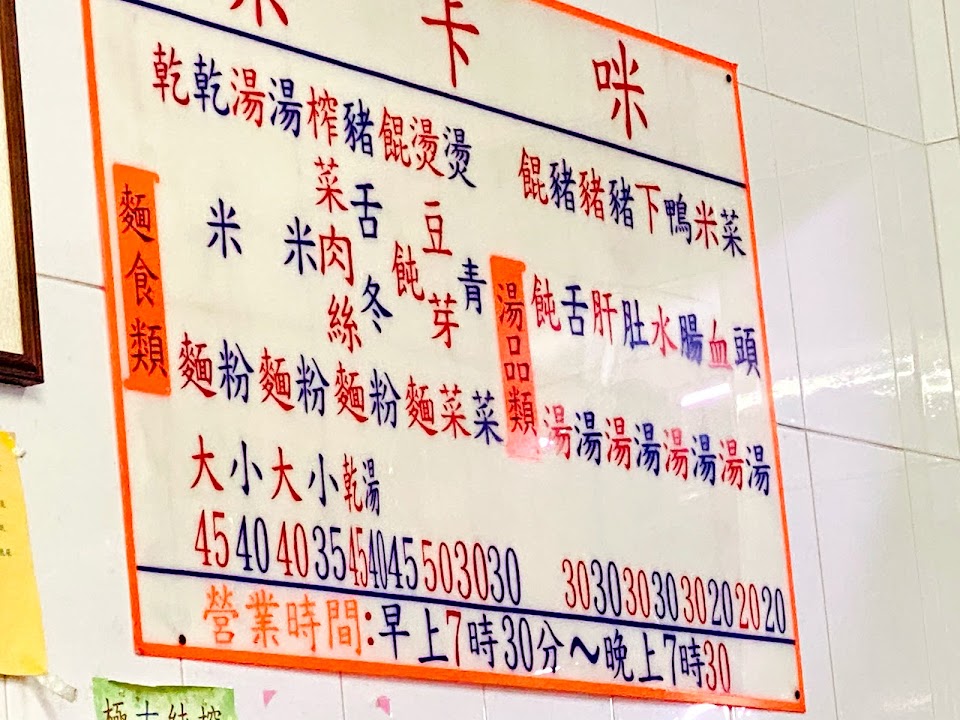 卡咪
麵食類
乾麵 大 45
乾米粉 小 40
湯麵 大 40
湯米粉 小 35
榨菜肉絲麵 乾 45 湯 40
豬舌冬粉 45
餛飩麵 50
燙豆芽菜 30
燙青菜 30
湯品類
餛飩湯 30
豬舌湯 30
豬肝湯 30
豬肚湯 30
下水湯 30
鴨腸湯 20
米血湯 20
菜頭湯 20
營業時間:早上7時30分~晚上7時30